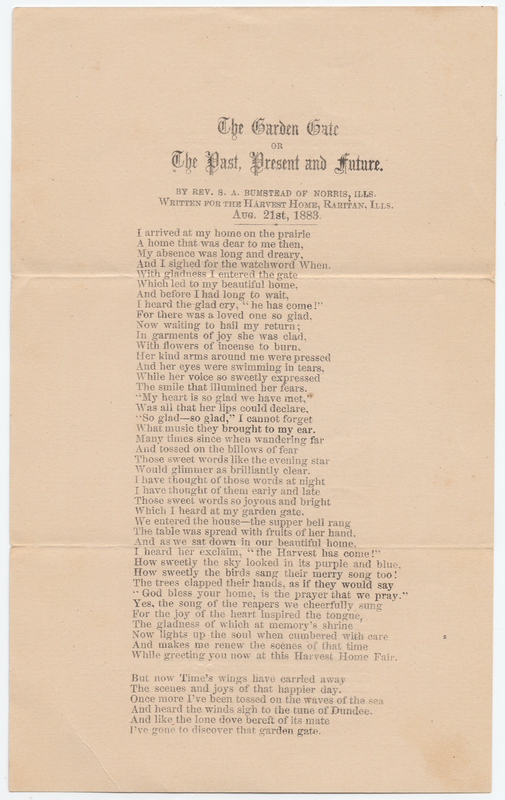 The Garden Gate
OR
The Past, Present and Future.
BY REV. S. A. BUMSTEAD OF NORRIS, ILLS.
WRITTEN FOR THE HARVEST HOME, RARITAN, ILLS.
AUG. 21st, 1883.
I arrived at my home on the prairie
A home that was dear to me then,
My absence was long and dreary,
And I sighed for the watchword When.
With gladness I entered the gate
Which led to my beautiful home,
And before I had long to wait,
I heard the glad cry, "he has come!"
For there was a loved one so glad,
Now waiting to hail my return;
In garments of joy she was clad,
With flowers of incense to burn.
Her kind arms around me were pressed
And her eyes were swimming in tears,
While her voice so sweetly expressed
The smile that illumined her fears.
"My heart is so glad we have met,"
Was all that her lips could declare,
"So glad—so glad," I cannot forget
What music they brought to my ear.
Many times since when wandering far
And tossed on the billows of fear
Those sweet words like the evening star
Would glimmer as brilliantly clear.
I have thought of those words at night
I have thought of them early and late
Those sweet words so joyous and bright
Which I heard at my garden gate.
We entered the house—the supper bell rang
The table was spread with fruits of her hand,
And as we sat down in our beautiful home,
I heard her exclaim, "the Harvest has come!"
How sweetly the sky looked in its purple and blue,
How sweetly the birds sang their merry song too!
The trees clapped their hands, as if they would say
"God bless your home, is the prayer that we pray."
Yes, the song of the reapers we cheerfully sung
For the joy of the heart inspired the tongue,
The gladness of which at memory's shrine
Now lights up the soul when cumbered with care
And makes me renew the scenes of that time
While greeting you now at this Harvest Home Fair.
But now Time's wings have carried away
The scenes and joys of that happier day.
Once more I've been tossed on the waves of the sea
And heard the winds sigh to the tune of Dundee.
And like the lone dove bereft of its mate
I've gone to discover that garden gate.